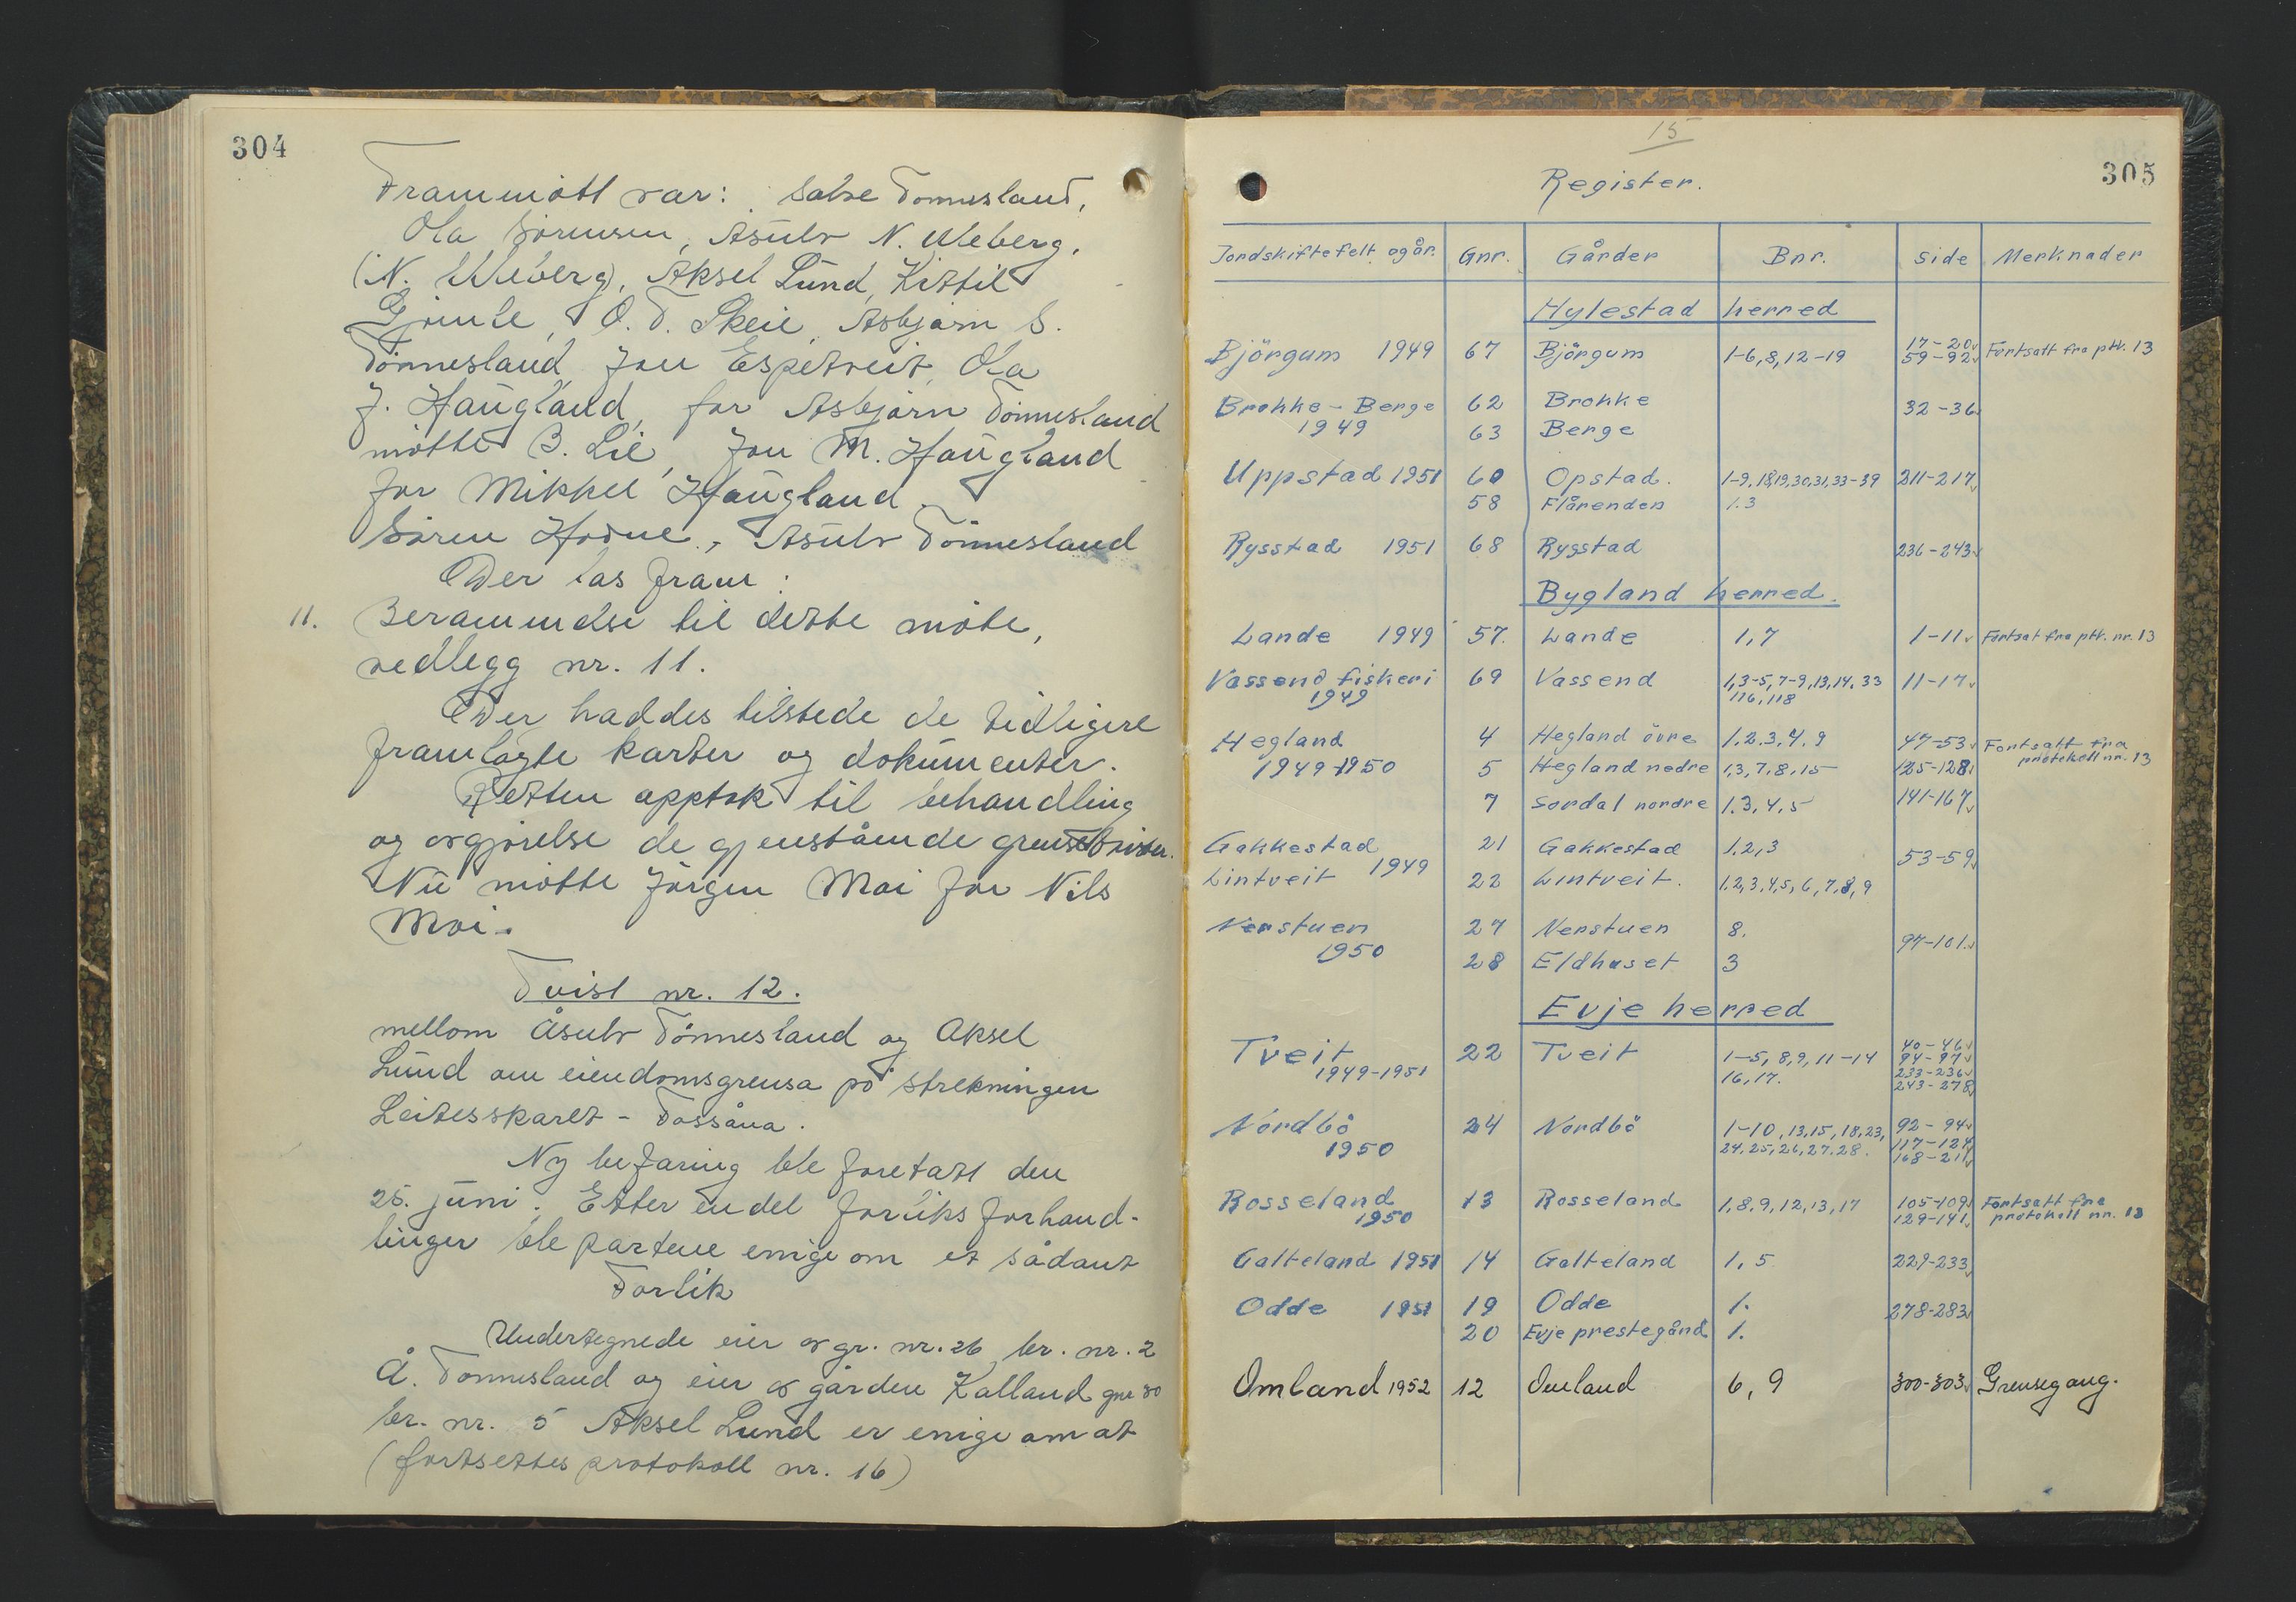 304
Frammött var: Salve Tönnesland,
Ola Sörensen, Åsulv N. Uleberg,
(N. Uleberg), Aksel Lund, Kittil
O. T. Skeie, Asbjörn S.
Tönnesland, Jon Espetveit, Ola
J. Haugland, for Asbjörn Tönnesland
mötte B. Lie, Jon M. Haugland
for Mikkel Haugland,
Sören Hodne, Åsulv Tönnesland
Der las fram:
11. Berammelse til dette möte,
vedlegg nr. 11.
Der haddes tilstede de tidligere
framlagte karter og dokumenter.
Retten opptok til behandling
og avgjörelse de gjenstående grensetvister.
Nu mötte Jörgen Moi for Nils
Moi.
Tvist nr. 12.
mellom Åsulv Tönnesland og Aksel
Lund om eiendomsgrensa på strekningen
Leitesskaret - Fossåna.
Ny befaring ble foretatt den
25. juni. Etter en del forliks forhand-
linger ble partene enige om et sådant
Forlik
Undertegnede eier av gr. nr. 26 br. nr. 2
Å. Tönnesland og eier av gården Kalland gnr 30
br. nr. 5 Aksel Lund er enige om at
(fortsettes protokoll nr. 16)
15
305
Register.
Jordskiftefelt og år. Gnr. Gårder Bnr. Side Merknader
Hylestad herred
Björgum 1949 67 Björgum 1-6, 8, 12-19 17-20 59-92 Fortsatt fra ptk. 13
Brokke - Berge 62 Brokke 32-36
1949 63 Berge
Uppstad 1951 60 Opstad. 1-9, 18,19,30,31,33-39 211-217
58 Flårenden 1.3
Rysstad 1951 68 Rysstad 236-243
Bygland herred.
Lande 1949 57. Lande 1, 7 1-11 Fortsat fra ptk. nr. 13
Vassend fiskeri 69 Vassend 1,3-5,7-9,13,14,33 11-17
1949 116, 118
Hegland 4 Hegland övre 1.2.3.4.9 47-53 Fortsatt fra
1949-1950 5 Hegland nedre 1,3,7,8,15 125-128 protokoll nr. 13
7 Sordal nordre 1.3,4,5 141-167
Gakkestad 21 Gakkestad 1.2,3 53-59
Lintveit 1949 22 Lintveit. 1.2,3,4,5,6,7,8,9
Nerstuen 27 Nerstuen 8. 97-101
1950 28 Eldhuset 3
Evje herred
Tveit 22 Tveit 1-5, 8,9, 11-14 40-46
1949-1951 16, 17. 94-97
233-236
243-278
Nordbö 24 Nordbö 1-10, 13,15, 18,23, 92-94
1950 24, 25, 26, 27. 28. 117-124
168-211
Rosseland 13 Rosseland 1, 8, 9, 12, 13, 17 105-109 Fortsatt fra
1950 129-141 protokoll nr. 13
Galteland 1951 14 Galteland 1, 5 229-233
Odde 1951 19 Odde 1. 278-283
20 Evje prestegård 1.
Omland 1952 12 Omland 6, 9 300-303 Grensegang.